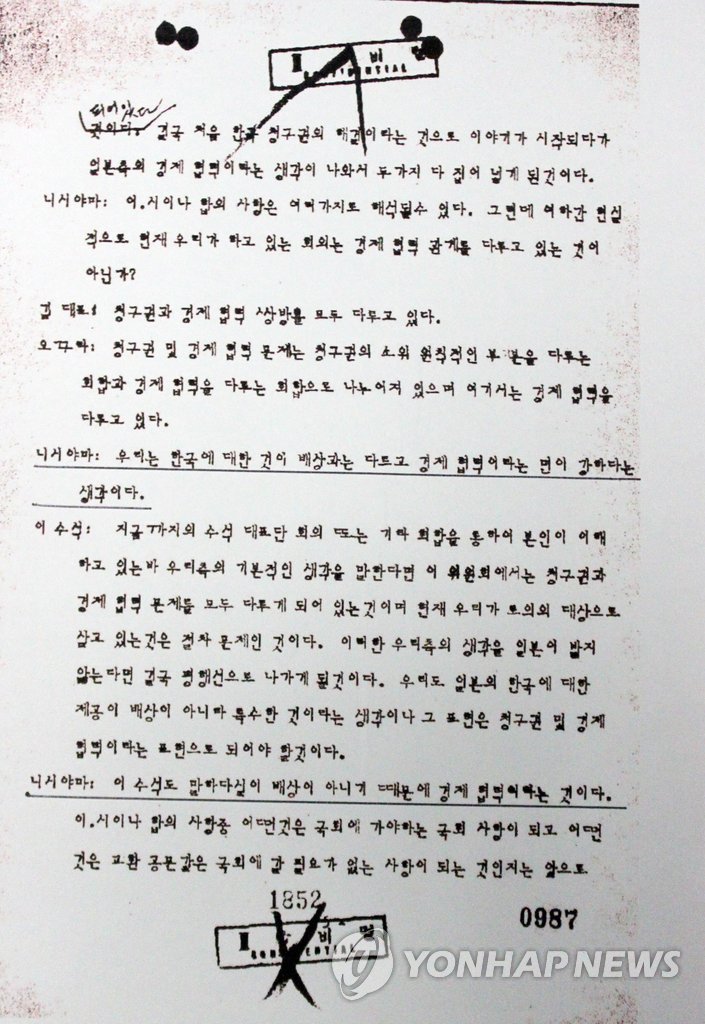 Ⅱ 급 비 밀
CONFIDENTIAL
되어있다
것이다. 결국 처음 한국 청구권의 해결이라는 것으로 이야기가 시작되다가
일본측의 경제 협력이라는 생각이 나와서 두가지 다 집어 넣게 된것이다.
니시야마: 이.시이나 합의 사항은 여러가지로 해석될수 있다. 그런데 여하간 현실
적으로 현재 우리가 하고 있는 회의는 경제 협력 관계를 다루고 있는 것이
아닌가?
김 대표: 청구권과 경제 협력 쌍방을 모두 다루고 있다.
오꾸라: 청구권 및 경제 협력 문제는 청구권의 소위 원칙적인 부분을 다루는
회합과 경제 협력을 다루는 회합으로 나누어져 있으며 여기서는 경제 협력을
다루고 있다.
니시야마: 우리는 한국에 대한 것이 배상과는 다르고 경제 협력이라는 면이 강하다는
생각이다.
이 수석: 지금까지의 수석 대표단 회의 또는 기타 회합을 통하여 본인이 이해
하고 있는바 우리측의 기본적인 생각을 말한다면 이 위원회에서는 청구권과
경제 협력 문제를 모두 다루게 되어 있는것이며 현재 우리가 토의의 대상으로
삼고 있는것은 절차 문제인 것이다. 이러한 우리측의 생각을 일본이 받지
않는다면 결국 평행선으로 나가게 될것이다. 우리도 일본의 한국에 대한
제공이 배상이 아니라 특수한 것이라는 생각이나 그 표현은 청구권 및 경제
협력이라는 표현으로 되어야 할것이다.
니시야마: 이 수석도 말하다싶이 배상이 아니기 때문에 경제 협력이라는 것이다.
이.시이나 합의 사항중 어떤것은 국회에 가야하는 국회 사항이 되고 어떤
것은 교환 공문같은 국회에 갈 필요가 없는 사항이 되는 것인지는 앞으로
1852
0987
Ⅱ 급 비 밀
CONFIDENTIAL
YONHAP NEWS